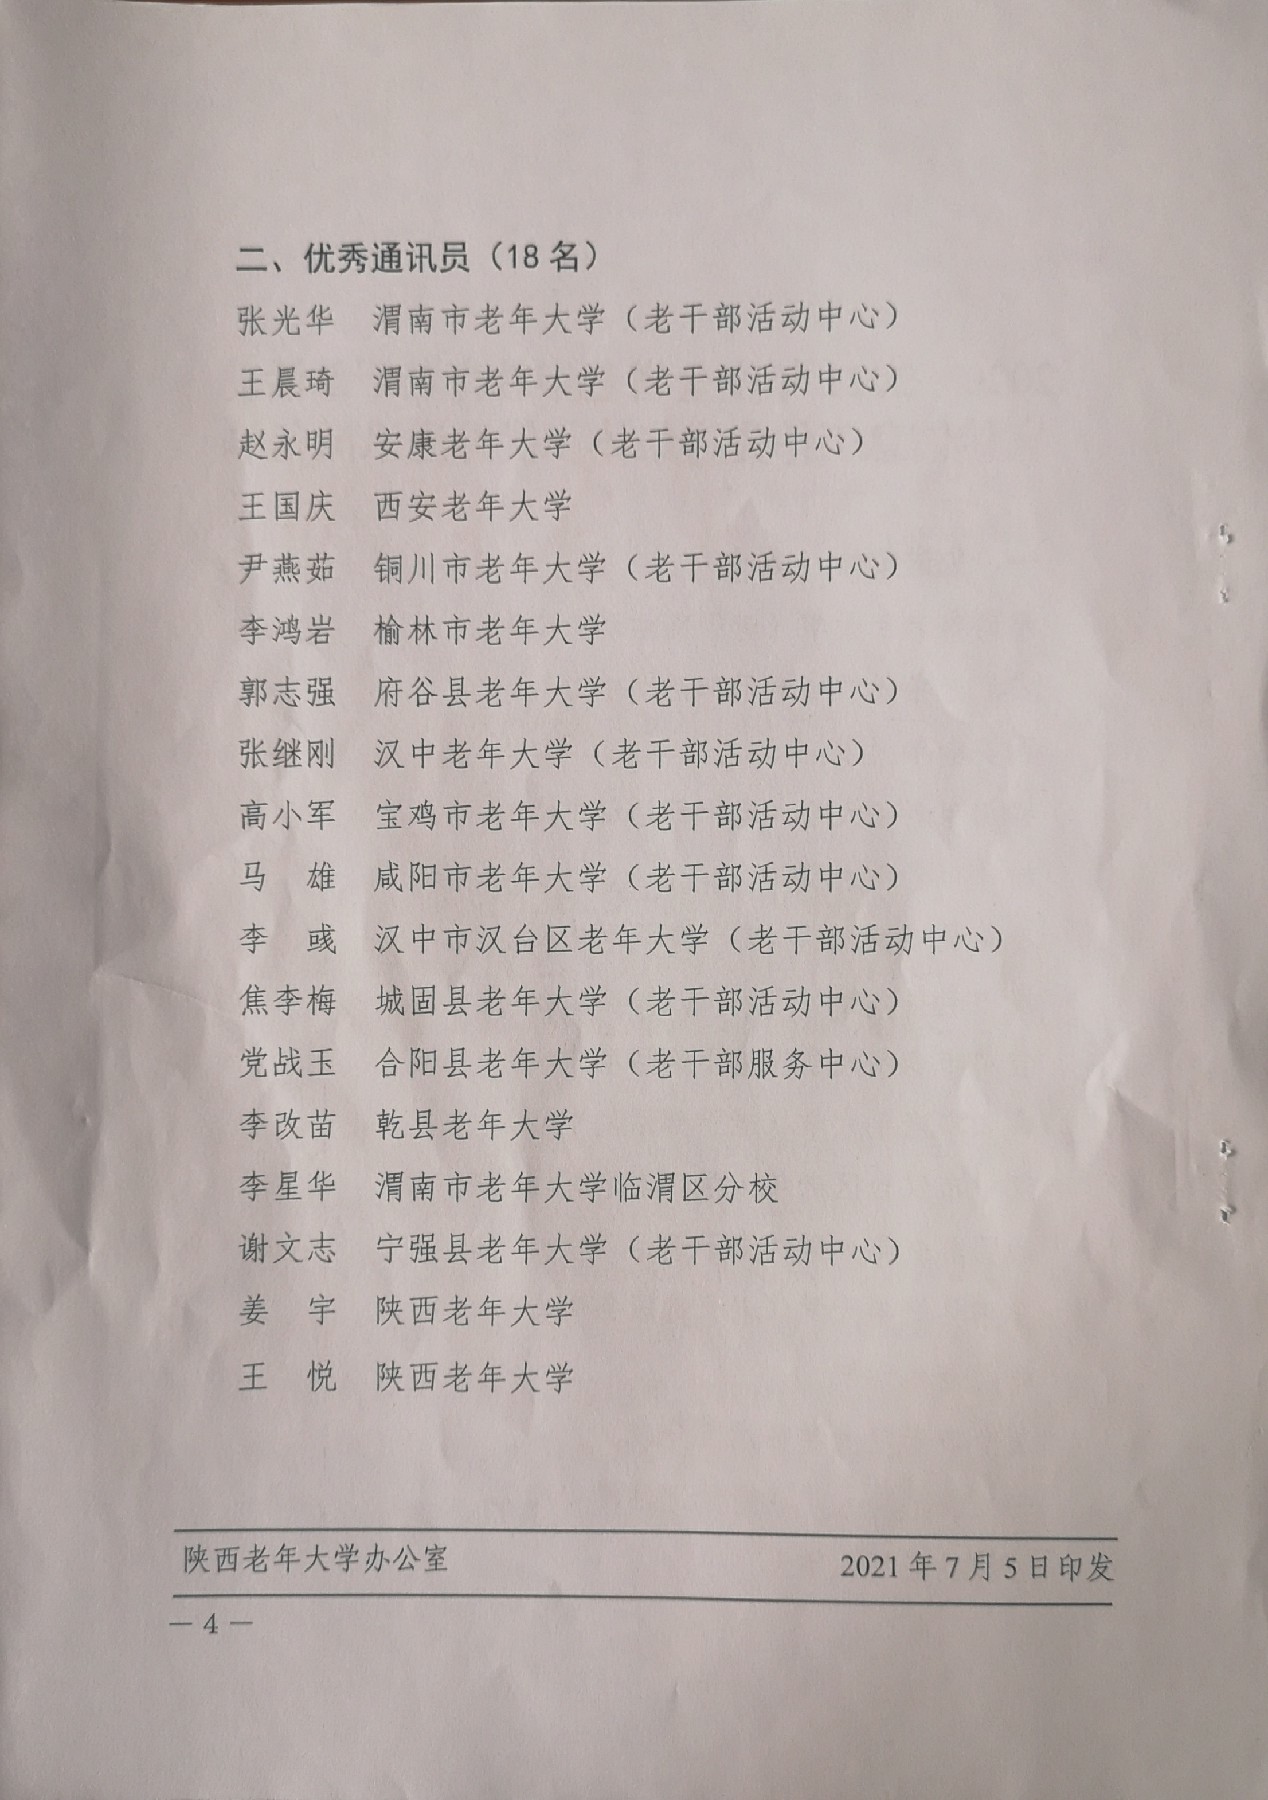 二、优秀通讯员（18名）
张光华 渭南市老年大学（老干部活动中心）
王晨琦 渭南市老年大学（老干部活动中心）
赵永明 安康老年大学（老干部活动中心）
王国庆 西安老年大学
尹燕茹 铜川市老年大学（老干部活动中心）
李鸿岩 榆林市老年大学
郭志强 府谷县老年大学（老干部活动中心）
张继刚 汉中老年大学（老干部活动中心）
高小军 宝鸡市老年大学（老干部活动中心）
马 雄 咸阳市老年大学（老干部活动中心）
李 彧 汉中市汉台区老年大学（老干部活动中心）
焦李梅 城固县老年大学（老干部活动中心）
党战玉 合阳县老年大学（老干部服务中心）
李改苗 乾县老年大学
李星华 渭南市老年大学临渭区分校
谢文志 宁强县老年大学（老干部活动中心）
姜 宇 陕西老年大学
王 悦 陕西老年大学
陕西老年大学办公室 2021年7月5日印发
— 4 —